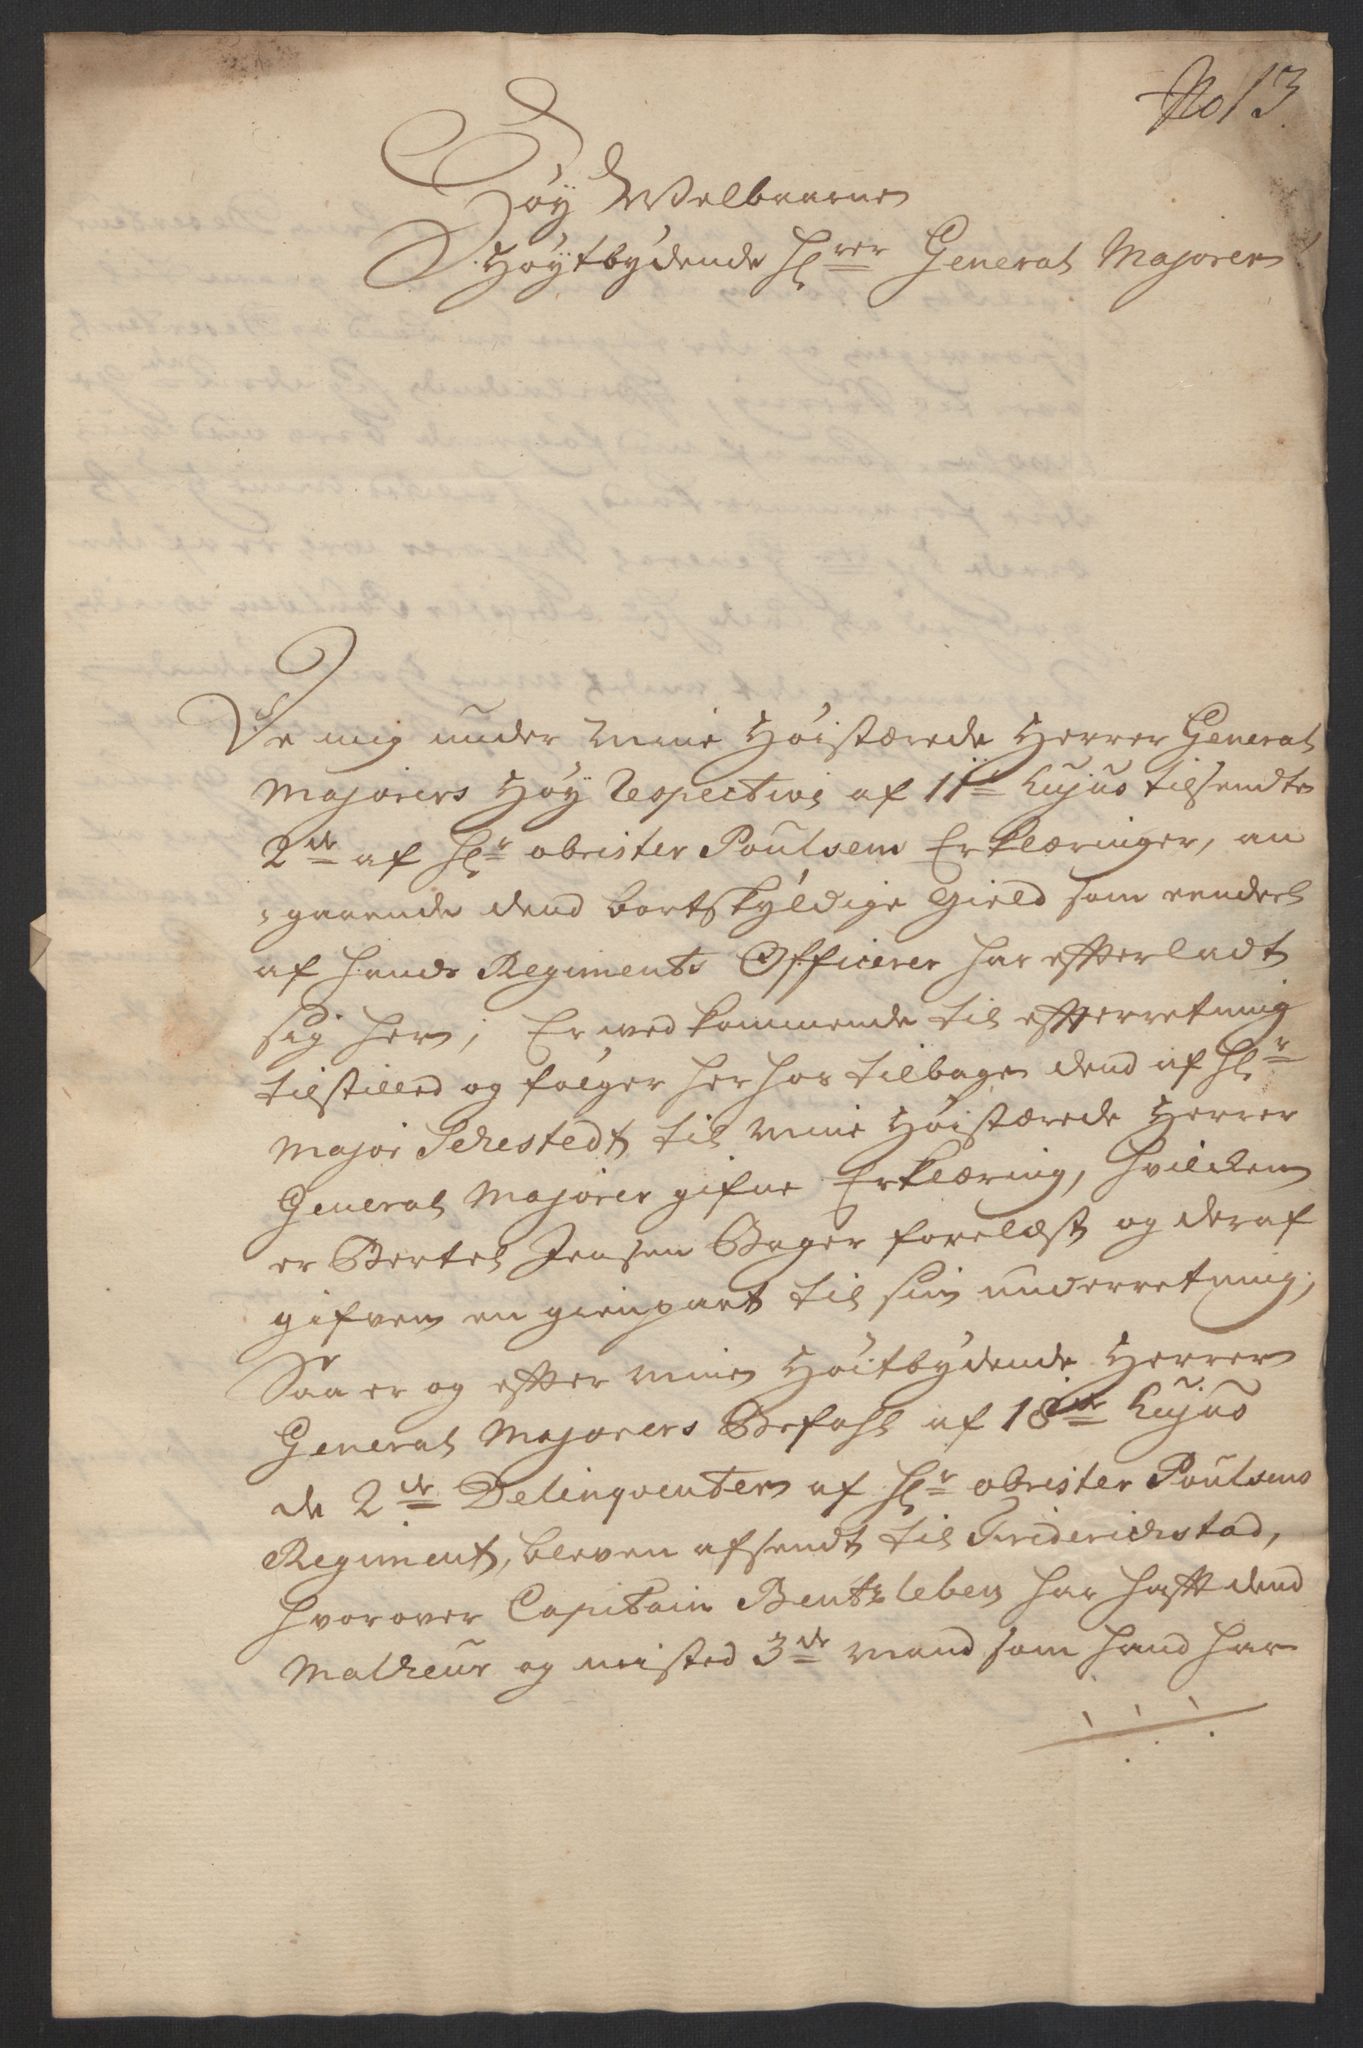 No 13.
Høy Welbaarne
Høytbydende Hrer General Majorer
De mig under mine Høistærede Herrer General
Majorers Høy Respective af 11te hujus tilsendte
2de af Hr obrister Poulsen Erklæringer, an
=gaaende dend bortskyldige Gield som eendeel
af hands Regiments Officerer har efterladt
sig her, Er wedkommende til efterretning
tilstilled og følger her hos tilbage dend af Hr
Major Sehestedt til mine Høistærede Herrer
General Majorer gifne Erklæring, hvilchen
er Bertel Jensen Bager forelæst og deraf
gifven en gienpart til sin underretning,
Saa er og efter mine Høitbydende Herrer
General Majorers Befahl af 18de hujus
de 2de Delinqventer af Hr obrister Poulsens
Regiment, bleven afsendt til Friderichstad,
hvorover Capitain Bentzleben har haft dend
Malheur og misted 3de mand som hand har